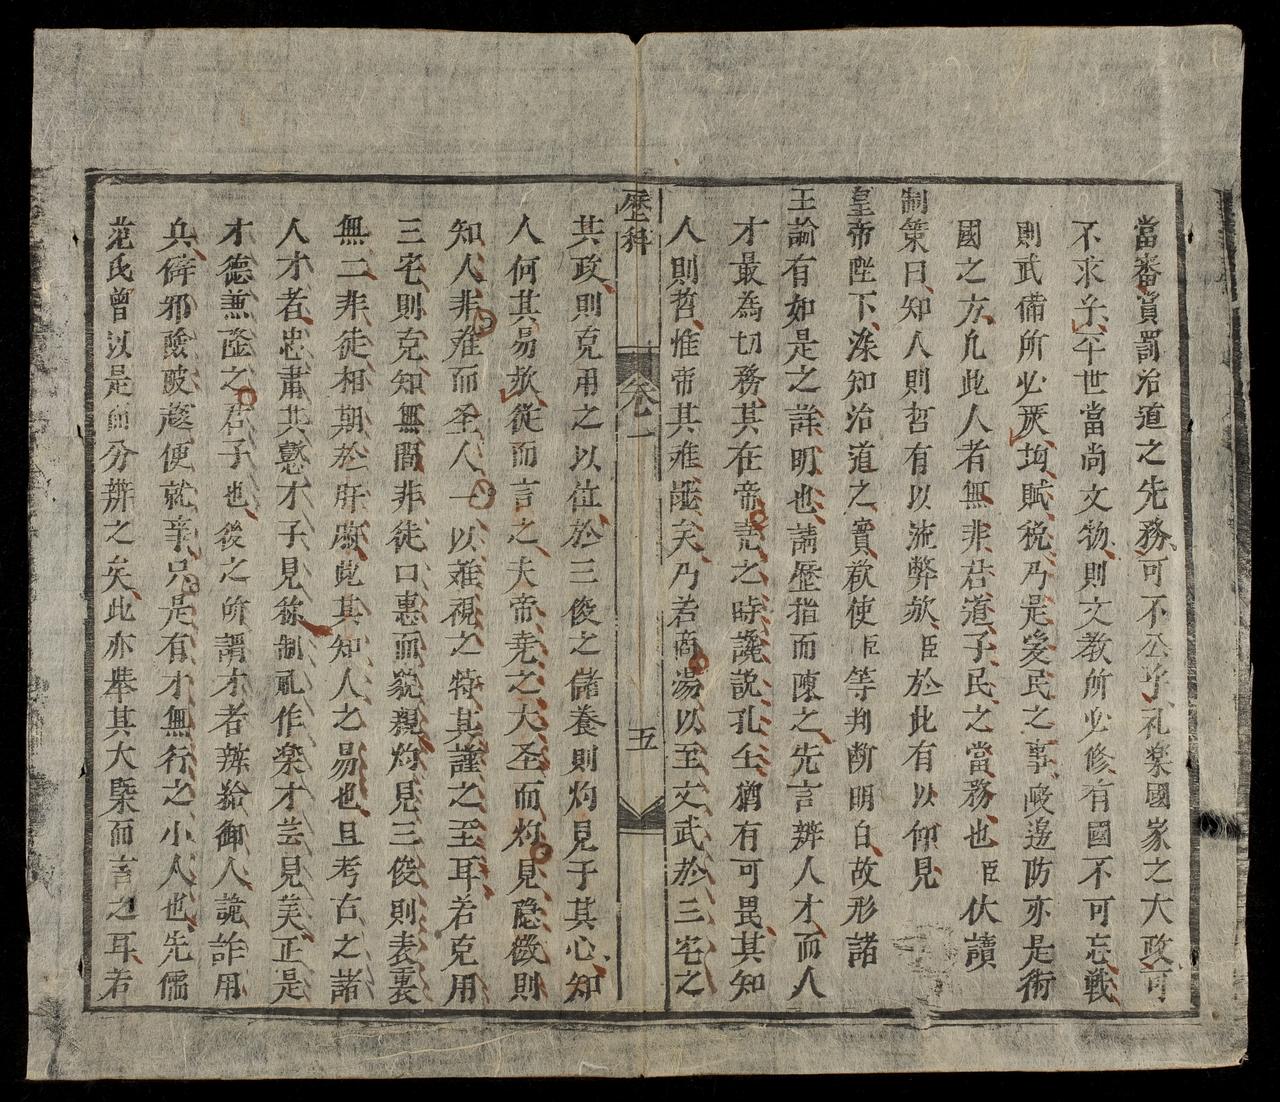 當審賞罰治道之先務可不公乎礼楽國家之大政可
不求乎平世當尚文物則文教所必修有國不可忘戰
則武備所必嚴均賦税乃是爱民之事峻邊防亦是衛
國之方凢此人者無非君道子民之當務也臣伏讀
制策曰知人則哲有以流弊欤臣於此有以仰見
皇帝陛下深知治道之實欲使臣等判断明白故形諸
王諭有如是之詳明也請歷指而陳之先言辨人才而人
才最為切務其在帝尭之時讒説孔壬猶有可畏其知
人則哲惟帝其难誠矣乃若商湯以至文武於三宅之
歷科 卷一 五
其政則克用之以位於三俊之儲養則灼見于其心知
人何其易欤從而言之夫帝尭之大圣而灼見隐微則
知人非难而圣人一以难視之特其謹之至耳若克用
三宅則克知無間非徒口惠而貌親灼見三俊則表裏
無二非徒相期於肝膈此其知人之易也且考古之諸
人才者忠肅共懿才子見稱制乱作楽才芸見美正是
才德兼隆之君子也後之所謂才者辨給御人詭詐用
兵僻邪險陂趍便就幸只是有才無行之小人也先儒
范氏曾以是而分辨之矣此亦舉其大槩而言之耳若